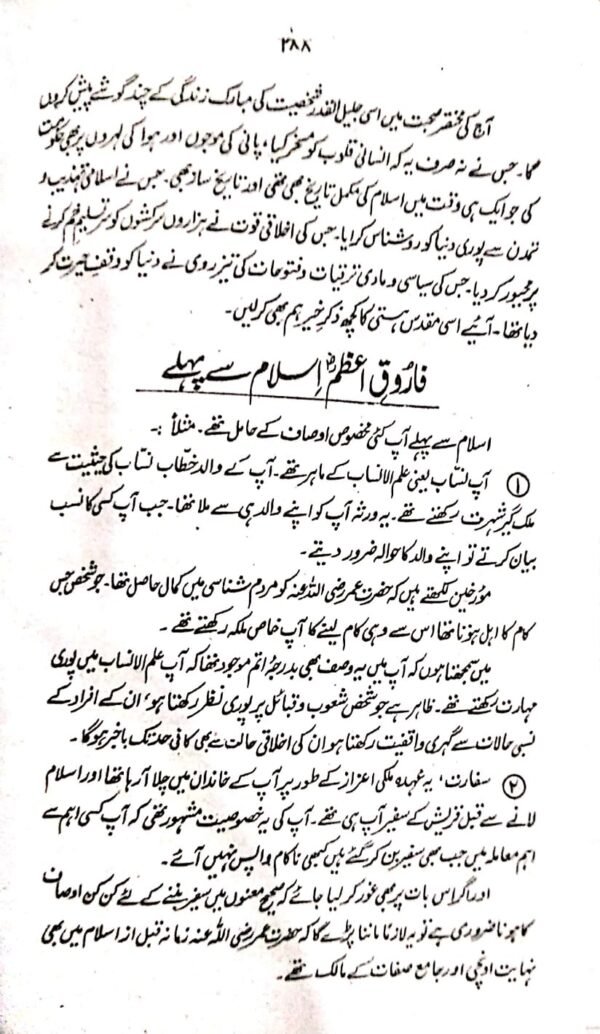 ۲۸۸
آج کی مختصر صحبت میں اسی جلیل القدر شخصیت کی مبارک زندگی کے چند گوشے پیش کروں
گا۔ جس نے نہ صرف یہ کہ انسانی قلوب کو مسخر کیا، پانی کی موجوں اور ہوا کی لہروں پر بھی حکومت
کی جو ایک ہی وقت میں اسلام کی مکمل تاریخ بھی تھی اور تاریخ ساز بھی۔ جس نے اسلامی تہذیب و
تمدن سے پوری دنیا کو روشناس کرایا۔ جس کی اخلاقی قوت نے ہزاروں سرکشوں کو سرِ تسلیم خم کرنے
پر مجبور کر دیا۔ جس کی سیاسی و مادی ترقیات و فتوحات کی تیز روی نے دنیا کو وقفِ حیرت کر
دیا تھا۔ آئیے اسی مقدس ہستی کا کچھ ذکرِ خیر ہم بھی کرلیں۔
فارُوقِ اعظمؓ اِسلام سے پہلے
اسلام سے پہلے آپ کئی مخصوص اوصاف کے حامل تھے۔ مثلاً :۔
① آپ نسّاب یعنی علم الانساب کے ماہر تھے۔ آپ کے والد خطّاب نسّاب کی حیثیت سے
ملک گیر شہرت رکھتے تھے۔ یہ ورثہ آپ کو اپنے والد ہی سے ملا تھا۔ جب آپ کسی کا نسب
بیان کرتے تو اپنے والد کا حوالہ ضرور دیتے۔
مؤرخین لکھتے ہیں کہ حضرت عمر رضی اللہ عنہ کو مردم شناسی میں کمال حاصل تھا۔ جو شخص جس
کام کا اہل ہوتا تھا اس سے وہی کام لینے کا آپ خاص ملکہ رکھتے تھے۔
میں سمجھتا ہوں کہ آپ میں یہ وصف بھی بدرجۂ اتم موجود تھا کہ آپ علم الانساب میں پوری
مہارت رکھتے تھے۔ ظاہر ہے جو شخص شعوب و قبائل پر پوری نظر رکھتا ہو، ان کے افراد کے
نسبی حالات سے گہری واقفیت رکھتا ہو ان کی اخلاقی حالت سے بھی کافی حد تک باخبر ہوگا۔
② سفارت، یہ عہدہ ملکی اعزاز کے طور پر آپ کے خاندان میں چلا آ رہا تھا اور اسلام
لانے سے قبل قریش کے سفیر آپ ہی تھے۔ آپ کی یہ خصوصیت مشہور تھی کہ آپ کسی اہم سے
اہم معاملہ میں جب بھی سفیر بن کر گئے ہیں کبھی ناکام واپس نہیں آئے۔
اور اگر اس بات پر بھی غور کر لیا جائے کہ صحیح معنوں میں سفیر بننے کے لئے کن کن اوصاف
کا ہونا ضروری ہے تو یہ لازماً ماننا پڑے گا کہ حضرت عمر رضی اللہ عنہ زمانہ قبل از اسلام میں بھی
نہایت اونچی اور جامع صفات کے مالک تھے۔